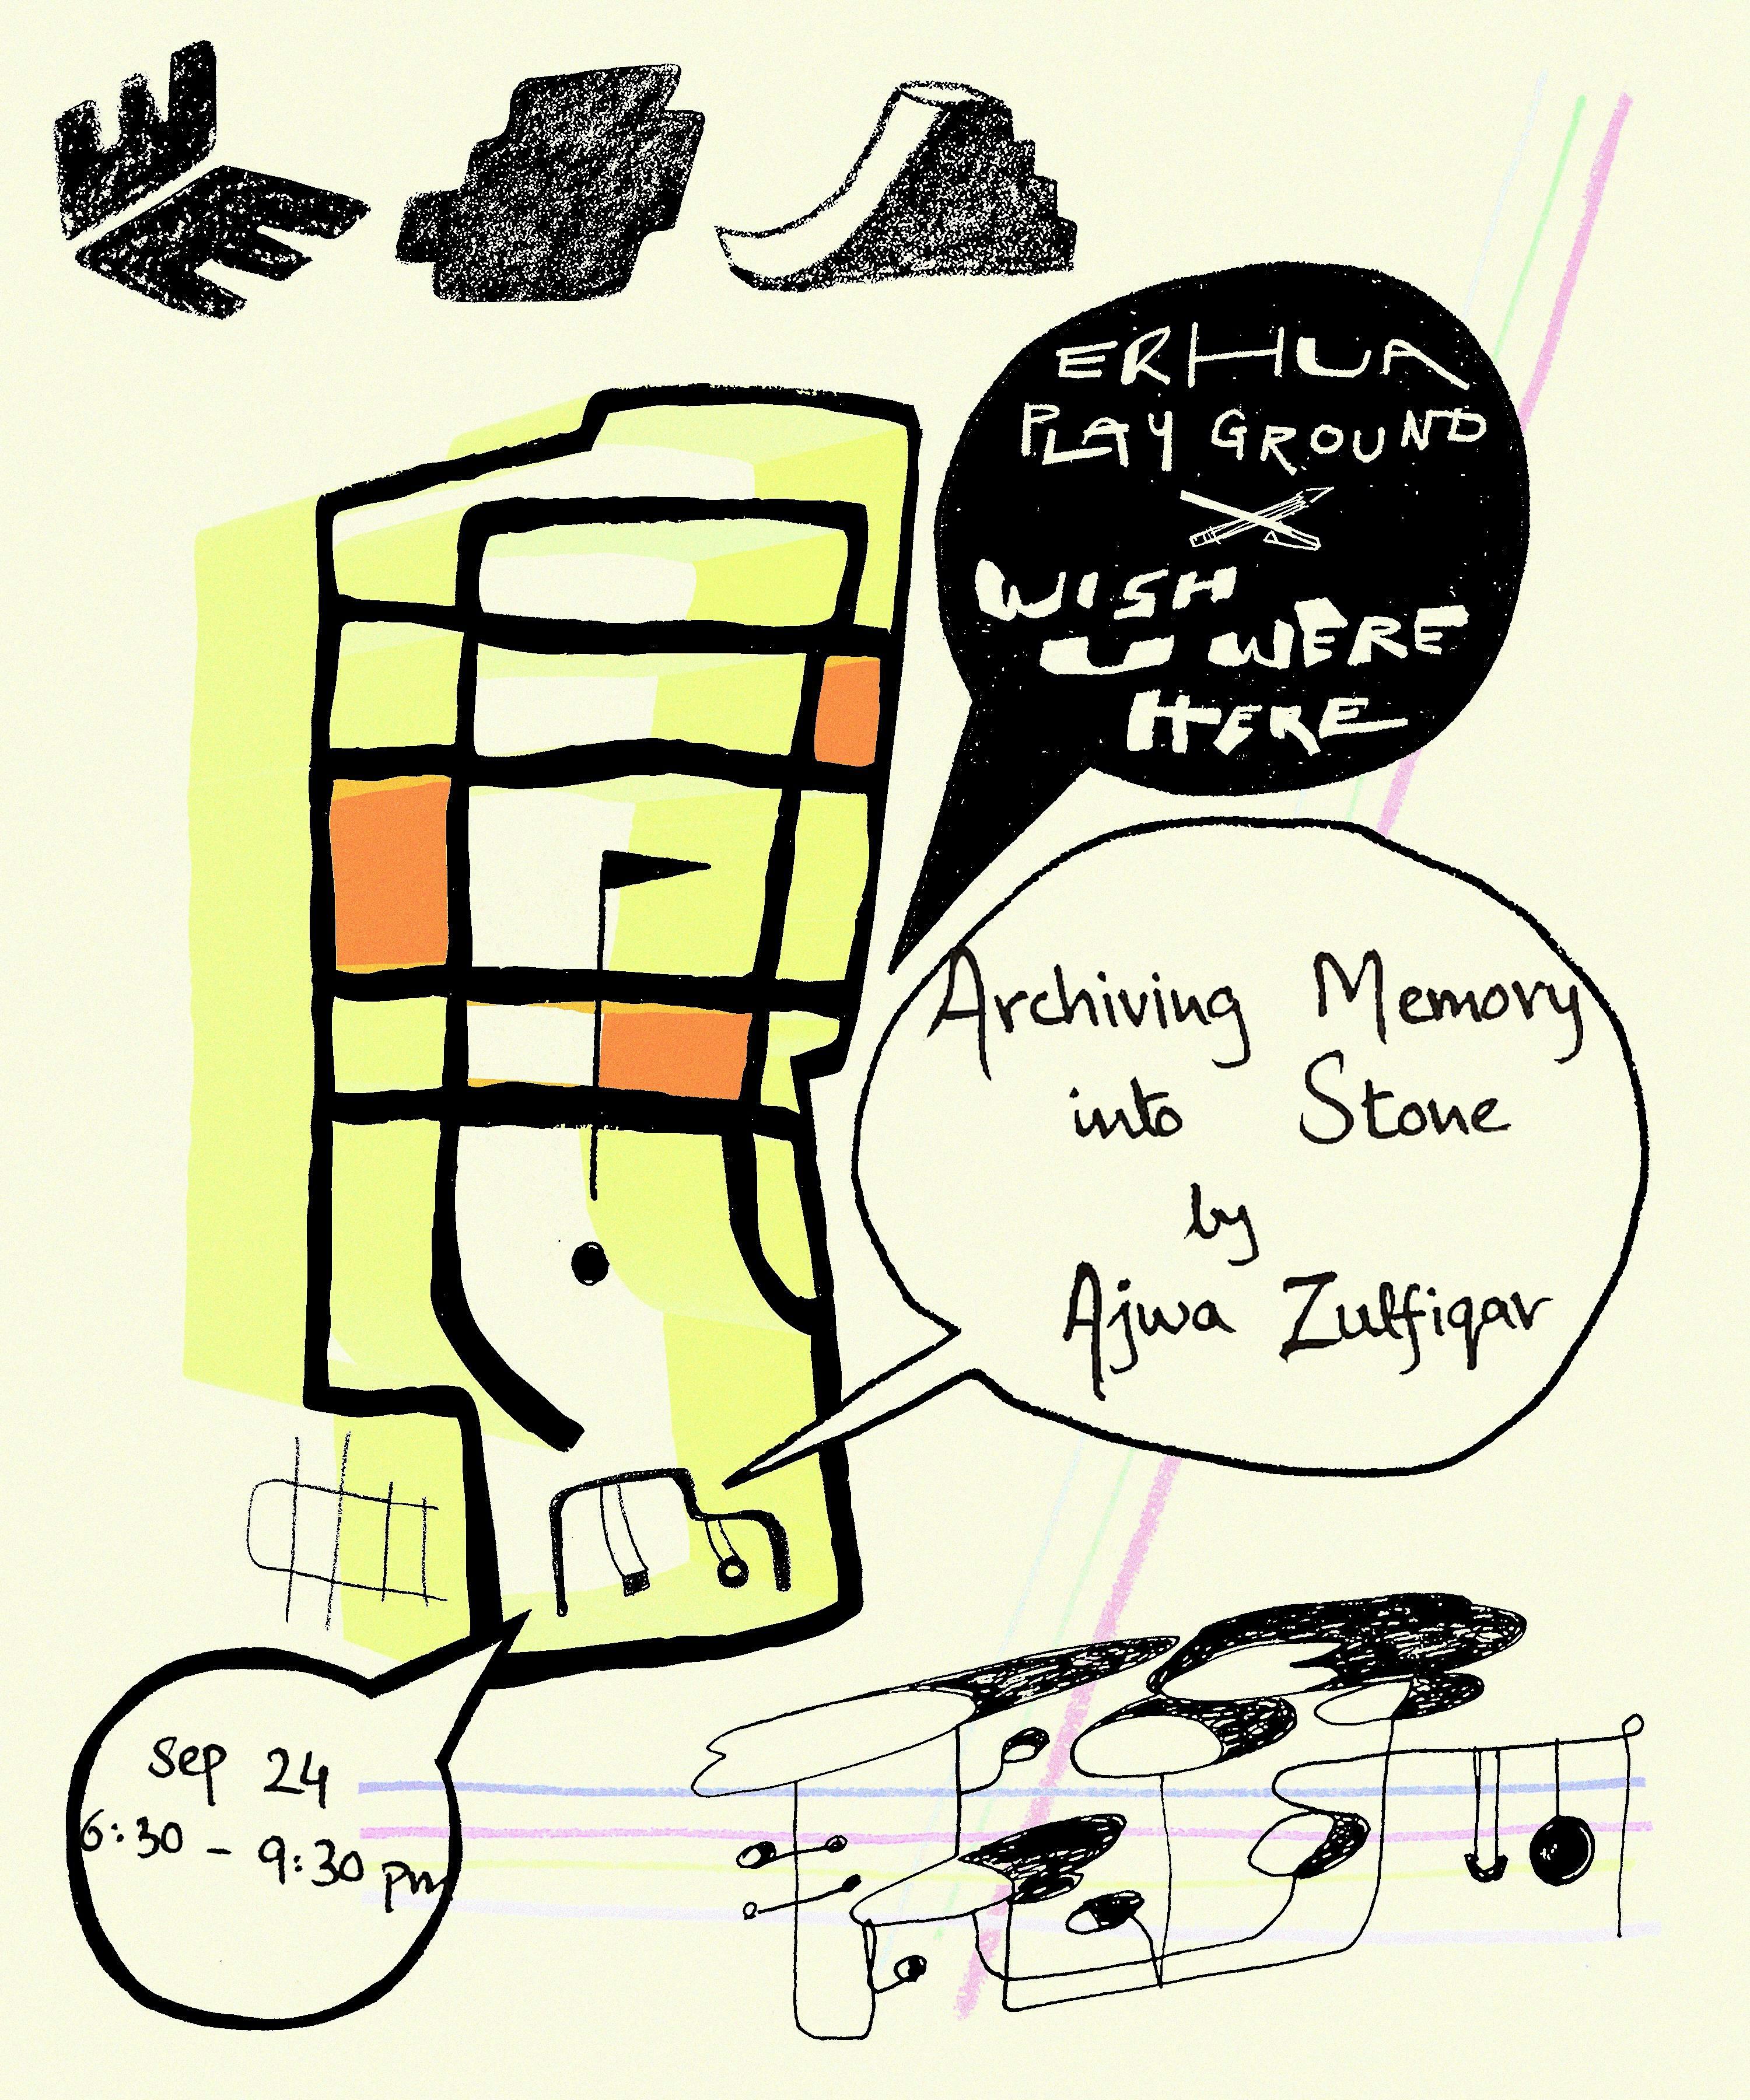 ERHUA
PLAY GROUND
WISH
U WERE
HERE
Archiving Memory
into Stone
by
Ajwa Zulfiqar
Sep 24
6:30 - 9:30 pm